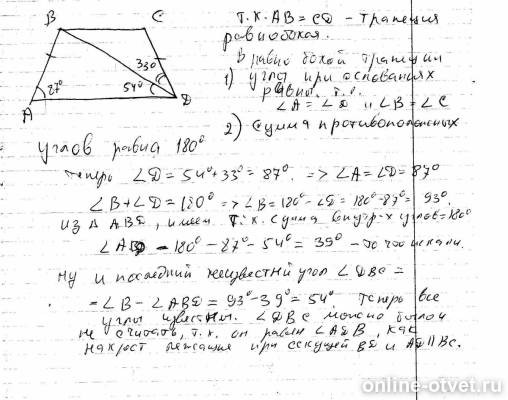 B
C
A
D
87°
33°
54°
Т.К. AB = CD – трапеция
равнобокая.
В равнобокой трапеции
1) углы при основаниях
равны. т.е.
∠A = ∠D и ∠B = ∠C
2) Сумма противоположных
углов равна 180°
Теперь ∠D = 54° + 33° = 87°. => ∠A = ∠D = 87°
∠B + ∠D = 180° => ∠B = 180° - ∠D = 180° - 87° = 93°.
Из Δ ABD, имеем т.к. сумма внутр-х углов = 180°
180° - 87° - 54° = 39° - то что искали.
Ну и последний неизвестный угол ∠DBC =
= ∠B - ∠ABD = 93° - 39° = 54°. Теперь все
углы известны. ∠DBC можно было и
не считать, т.к. он равен ∠ADB, как
накрест лежащие при секущей BD и AD || BC.
online-otvet.ru